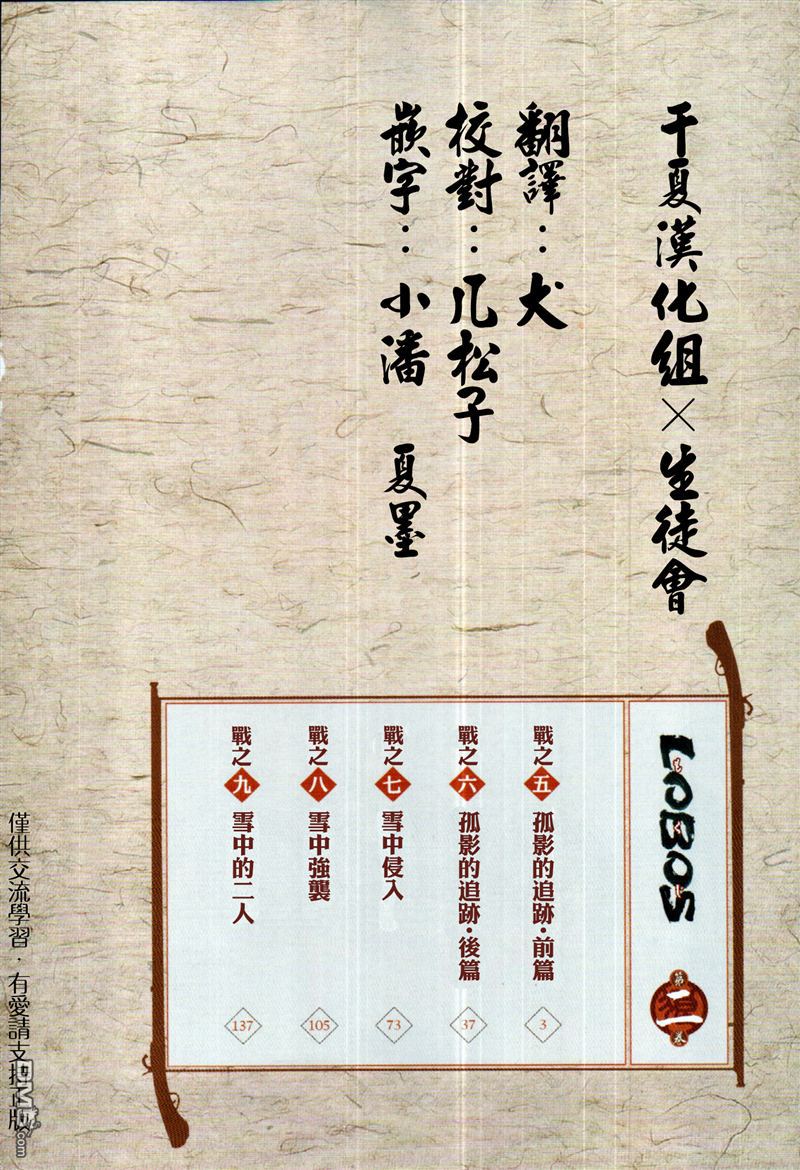 干夏漢化組×生徒會
翻譯：犬
校對：凡松子
嵌字：小潘 夏墨
LOBOS
第二卷
戰之五 孤影的追跡・前篇 3
戰之六 孤影的追跡・後篇 37
戰之七 雪中侵入 73
戰之八 雪中強襲 105
戰之九 雪中的二人 137
僅供交流學習．有愛請支持正版